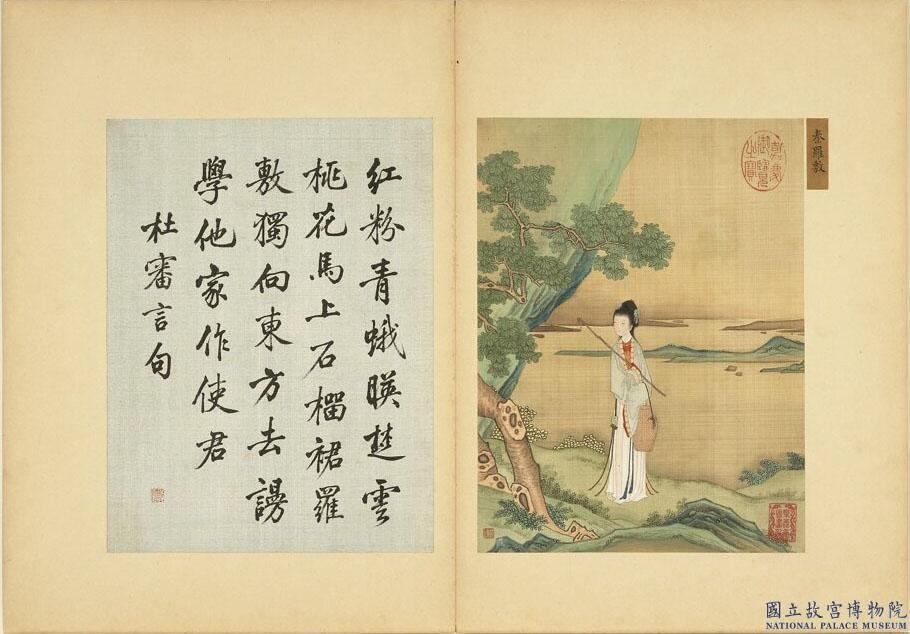 秦羅敷
嘉慶御覽之寶
紅粉青蛾暎楚雲
桃花馬上石榴裙羅
敷獨向東方去謾
學他家作使君
杜審言句
國立故宮博物院
NATIONAL PALACE MUSEUM